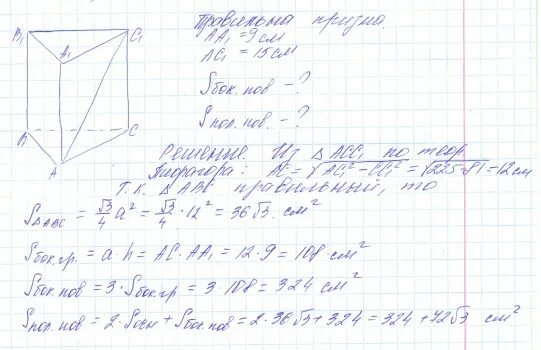 Правильна призма.
B₁ C₁ AA₁ = 9 см
A₁ AC₁ = 15 см
Sбок.пов – ?
Sпол.пов. – ?
B C
A
Решение. Из △ACC₁ по теор.
Пифагора: AC = √(AC₁² - CC₁²) = √(225-81) = 12 см
Т.к. △ABC правильный, то
S△ABC = √3/4 a² = √3/4 · 12² = 36√3 см²
Sбок.гр. = a · h = AC · AA₁ = 12 · 9 = 108 см²
Sбок.пов = 3 · Sбок.гр = 3 · 108 = 324 см²
Sпол.пов = 2 · Sосн + Sбок.пов = 2 · 36√3 + 324 = 324 + 72√3 см²